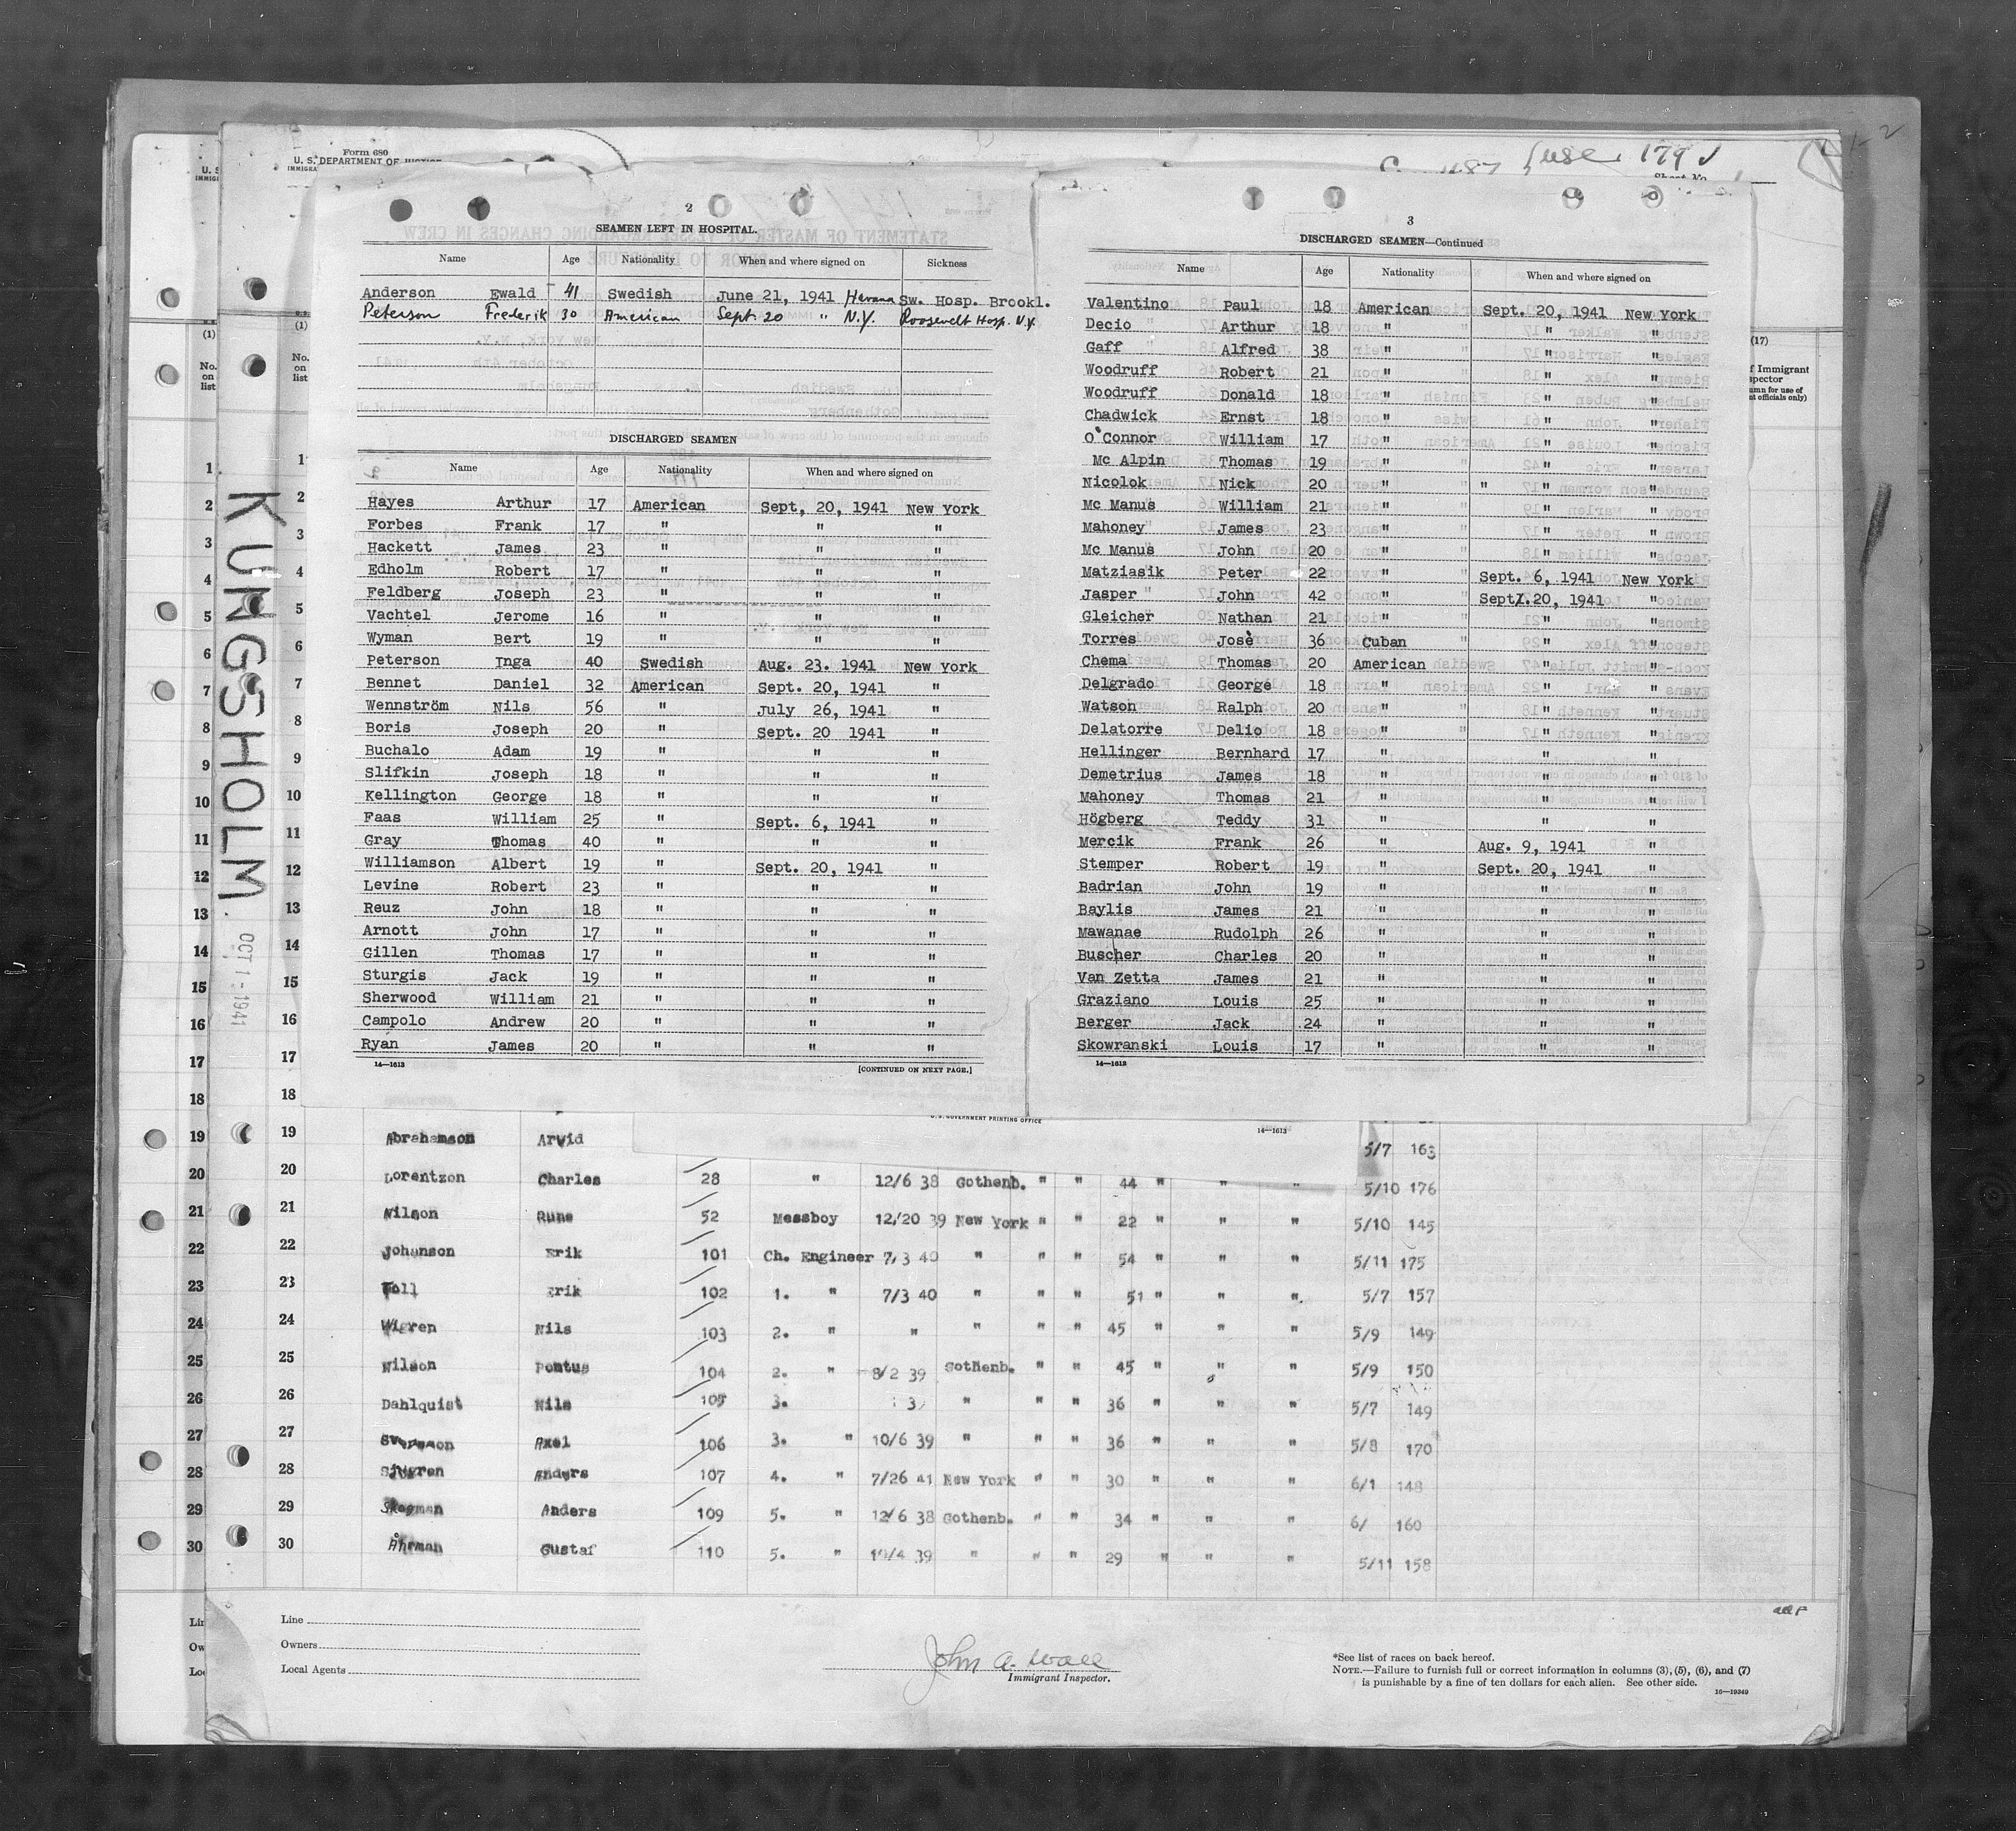 Form 680
U. S. DEPARTMENT OF JUSTICE
2
SEAMEN LEFT IN HOSPITAL.
Name Age Nationality When and where signed on Sickness
Anderson Ewald 41 Swedish June 21, 1941 Havana Sw. Hosp. Brookl.
Peterson Frederik 30 American Sept. 20 " N.Y. Roosevelt Hosp. N.Y.
DISCHARGED SEAMEN
Name Age Nationality When and where signed on
Hayes Arthur 17 American Sept, 20, 1941 New York
Forbes Frank 17 " " "
Hackett James 23 " " "
Edholm Robert 17 " " "
Feldberg Joseph 23 " " "
Vachtel Jerome 16 " " "
Wyman Bert 19 " " "
Peterson Inga 40 Swedish Aug. 23. 1941 New York
Bennet Daniel 32 American Sept. 20, 1941 "
Wennström Nils 56 " July 26, 1941 "
Boris Joseph 20 " Sept. 20 1941 "
Buchalo Adam 19 " " "
Slifkin Joseph 18 " " "
Kellington George 18 " " "
Faas William 25 " Sept. 6, 1941 "
Gray Thomas 40 " " "
Williamson Albert 19 " Sept. 20, 1941 "
Levine Robert 23 " " "
Reuz John 18 " " "
Arnott John 17 " " "
Gillen Thomas 17 " " "
Sturgis Jack 19 " " "
Sherwood William 21 " " "
Campolo Andrew 20 " " "
Ryan James 20 " " "
14—1613 [CONTINUED ON NEXT PAGE.]
3
DISCHARGED SEAMEN—Continued
Name Age Nationality When and where signed on
Valentino Paul 18 American Sept. 20, 1941 New York
Decio Arthur 18 " " "
Gaff Alfred 38 " " "
Woodruff Robert 21 " " "
Woodruff Donald 18 " " "
Chadwick Ernst 18 " " "
O'Connor William 17 " " "
Mc Alpin Thomas 19 " " "
Nicolok Nick 20 " " " "
Mc Manus William 21 " " "
Mahoney James 23 " " "
Mc Manus John 20 " " "
Matziasik Peter 22 " Sept. 6, 1941 New York
Jasper John 42 " Sept. 20, 1941 "
Gleicher Nathan 21 " " "
Torres Josè 36 Cuban " "
Chema Thomas 20 American " "
Delgrado George 18 " " "
Watson Ralph 20 " " "
Delatorre Delio 18 " " "
Hellinger Bernhard 17 " " "
Demetrius James 18 " " "
Mahoney Thomas 21 " " "
Högberg Teddy 31 " " "
Mercik Frank 26 " Aug. 9, 1941 "
Stemper Robert 19 " Sept. 20, 1941 "
Badrian John 19 " " "
Baylis James 21 " " "
Mawanae Rudolph 26 " " "
Buscher Charles 20 " " "
Van Zetta James 21 " " "
Graziano Louis 25 " " "
Berger Jack 24 " " "
Skowranski Louis 17 " " "
14—1613
KUNGSHOLM
OCT 1 - 1941
U. S. GOVERNMENT PRINTING OFFICE 14—1613
19 Abrahamson Arvid 5/7 163
20 Lorentzon Charles 28 " 12/6 38 Gothenb. " " 44 " " " 5/10 176
21 Nilson Rune 52 Messboy 12/20 39 New York " " 22 " " " 5/10 145
22 Johanson Erik 101 Ch. Engineer 7/3 40 " " " 54 " " " 5/11 175
23 Toll Erik 102 1. " 7/3 40 " " " 51 " " " 5/7 157
24 Wigren Nils 103 2. " " " " " 45 " " " 5/9 149
25 Nilson Pontus 104 2. " 8/2 39 Gothenb. " " 45 " " " 5/9 150
26 Dahlquist Nils 105 3. " " " 36 " " " 5/7 149
27 Svensson Axel 106 3. " 10/6 39 " " " 36 " " " 5/8 170
28 Sjögren Anders 107 4. " 7/26 41 New York " " 30 " " " 6/1 148
29 Skogman Anders 109 5. " 12/6 38 Gothenb. " " 34 " " " 6/ 160
30 Åhrman Gustaf 110 5. " 10/4 39 " " " 29 " " " 5/11 158
Line
Owners
Local Agents
John A. Wall
Immigrant Inspector.
*See list of races on back hereof.
NOTE.—Failure to furnish full or correct information in columns (3), (5), (6), and (7)
is punishable by a fine of ten dollars for each alien. See other side.
16—19349